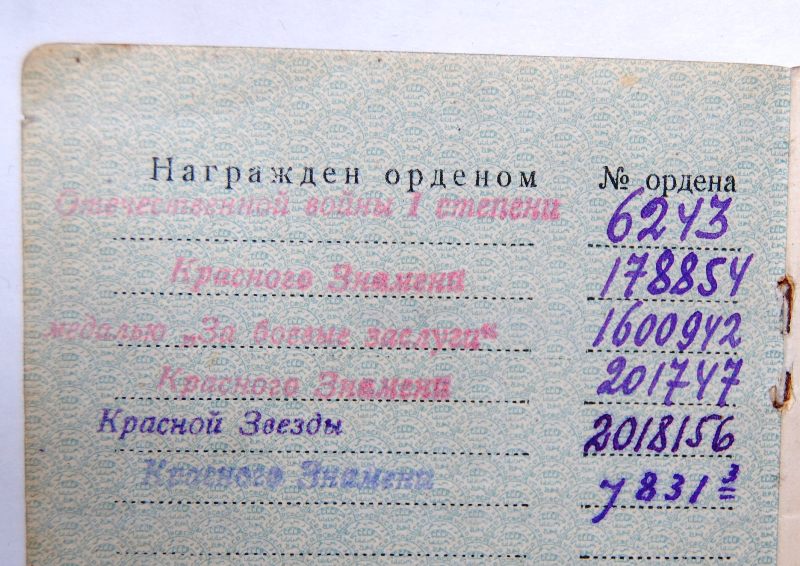 Награжден орденом № ордена
Отечественной войны I степени 6243
Красного Знамени 178854
медалью „За боевые заслуги“ 1600942
Красного Знамени 201747
Красной Звезды 2018156
Красного Знамени 7831 3